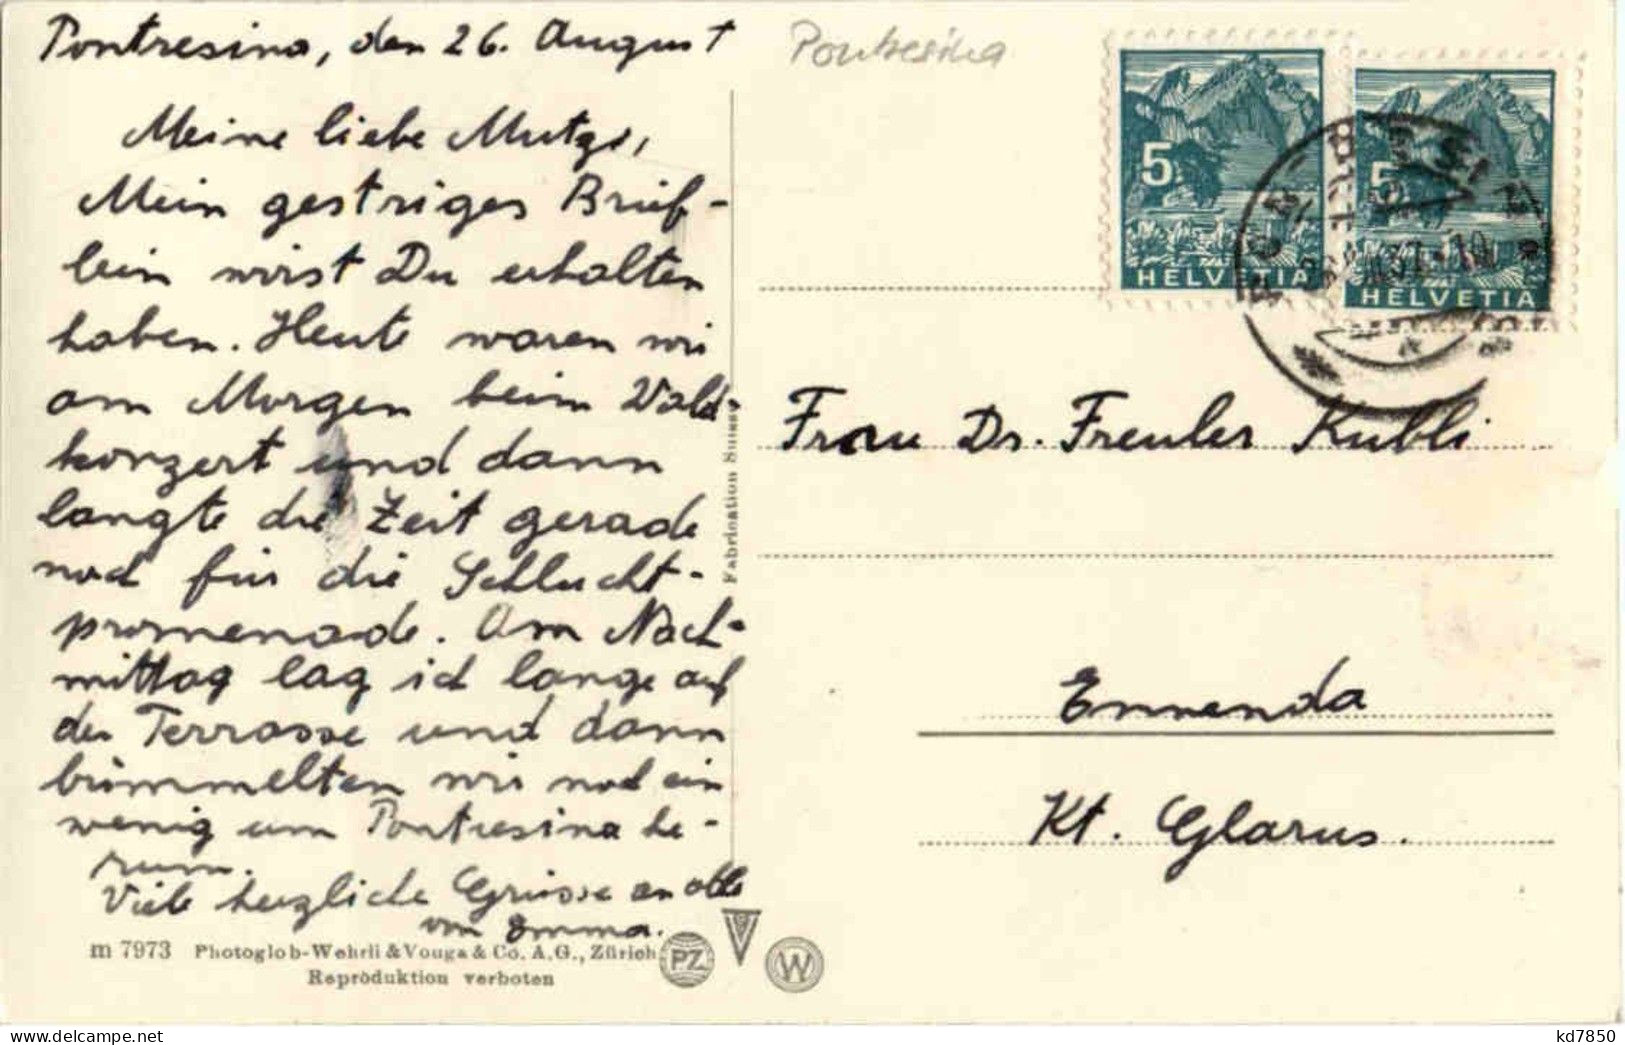 Pontresina, den 26. August
Meine liebe Mutzi,
Mein gestriges Brief-
lein wirst Du erhalten
haben. Heute waren wir
am Morgen beim Wald-
konzert und dann
langte die Zeit gerade
noch für die Schlucht-
promenade. Am Nach-
mittag lag ich lange auf
der Terrasse und dann
bummelten wir noch ein
wenig um Pontresina he-
rum.
Viele herzliche Grüsse an alle
von Emma.
m 7973 Photoglob-Wehrli & Vouga & Co. A.G., Zürich
Reproduktion verboten
PZ
W
Fabrication Suisse
Pontresina
5
HELVETIA
5
HELVETIA
Frau Dr. Freuler Kubli
Ennenda
Kt. Glarus.
kd7850